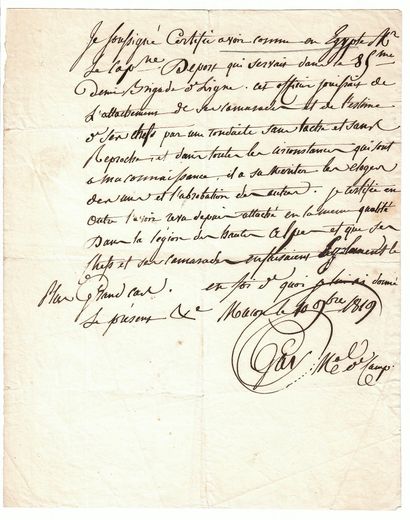 Je soussigné Certifie avoir connu en Egypte Mr
Le Capne Depost qui servais dans la 85eme
Demi Brigade de Ligne. cet officier jouissais de
L'attachement de ses camarades et de l'estime
de ses chefs par une conduite sans tache et sans
Reproche, et dans toutes les circonstances qui sont
a ma connaissance, il a su meriter les eloges
des uns et l'abrobation des autres. je certifie en
outre l'avoir revu depuis attaché en la meme qualité
Dans la légion des hautes alpes et que ses
chefs et ses camarades en faisaient Egalement le
Plus Grand cas. en foi de quoi donné
Le présent &c Macon le 10 1819
Mal de Camp.